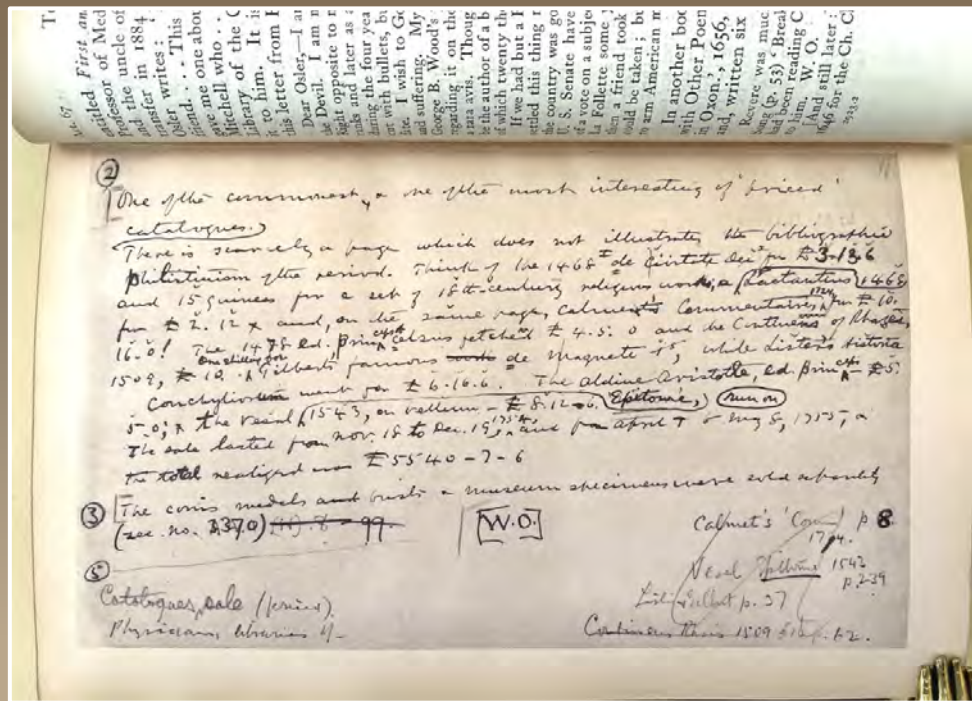 Vt. 67
Ti
entitled First am
Professor of Med
the uncle of
and transfer in 1884
writes:
Osler . . . This
me one abou
gave me who . . .
Mitchell
Library of the C
to him. It is
it to P
this letter from
Dear Osler,—I ar
the Devil. I am n
Right opposite to
and later as
during the four year
with bullets, bu
I wish to Ge
and suffering. My
George B. Wood's
regarding it on the
a rara avis. Thoug
be the author of a b
of which twenty th
If we had but a R
settled this thing
the country was go
U. S. Senate have
of a vote on a subje
La Follette some
then a friend took
could be taken; bu
to arm American m
In another boo
with Other Poen
in Oxon.', 1656,
and, written six
Revere was muc
(p. 53) Breal
had been reading C
to him. W. O.
[And still later:
1646 for the Ch. Cl
2
One of the commonest, & one of the most interesting of 'priced'
catalogues.
There is scarcely a page which does not illustrate the bibliographic
philistinism of the period. Think of the 1468 de Civitate Dei for £3.13.6
and 15 guineas for a set of 18th-century religious works, a Lactantius 1468
for £2.12 & and, on the same page, Calmet's Commentaires 1724 for £10.
16.0! The 1478 ed. princeps Celsus fetched £4.5.0 and the Continens of Rhazes,
1509, 10. one shilling for Gilbert's famous de magnete 15, while Lister's historia
Conchyliorum went for £6.16.6. The aldine Aristotle, ed. princeps £5.
5.0; & the Vesal 1543, on vellum – £8.12.6. Epitome, run on
The sale lasted from Nov. 18 to Dec. 19, 1754, and from April 7 to May 8, 1755, &
the total realized was £5540-7-6
3
The coins medals and busts & museum specimens were sold separately
(see no. 3370) 99.
W.O.
Calmet's 'Com' p 8
1724.
5
Vesal Epitome 1543
p. 239
Catalogues, sale (priced).
Gilbert p. 37
Physicians, libraries of–
Continens Rhazis 1509 p. 62.